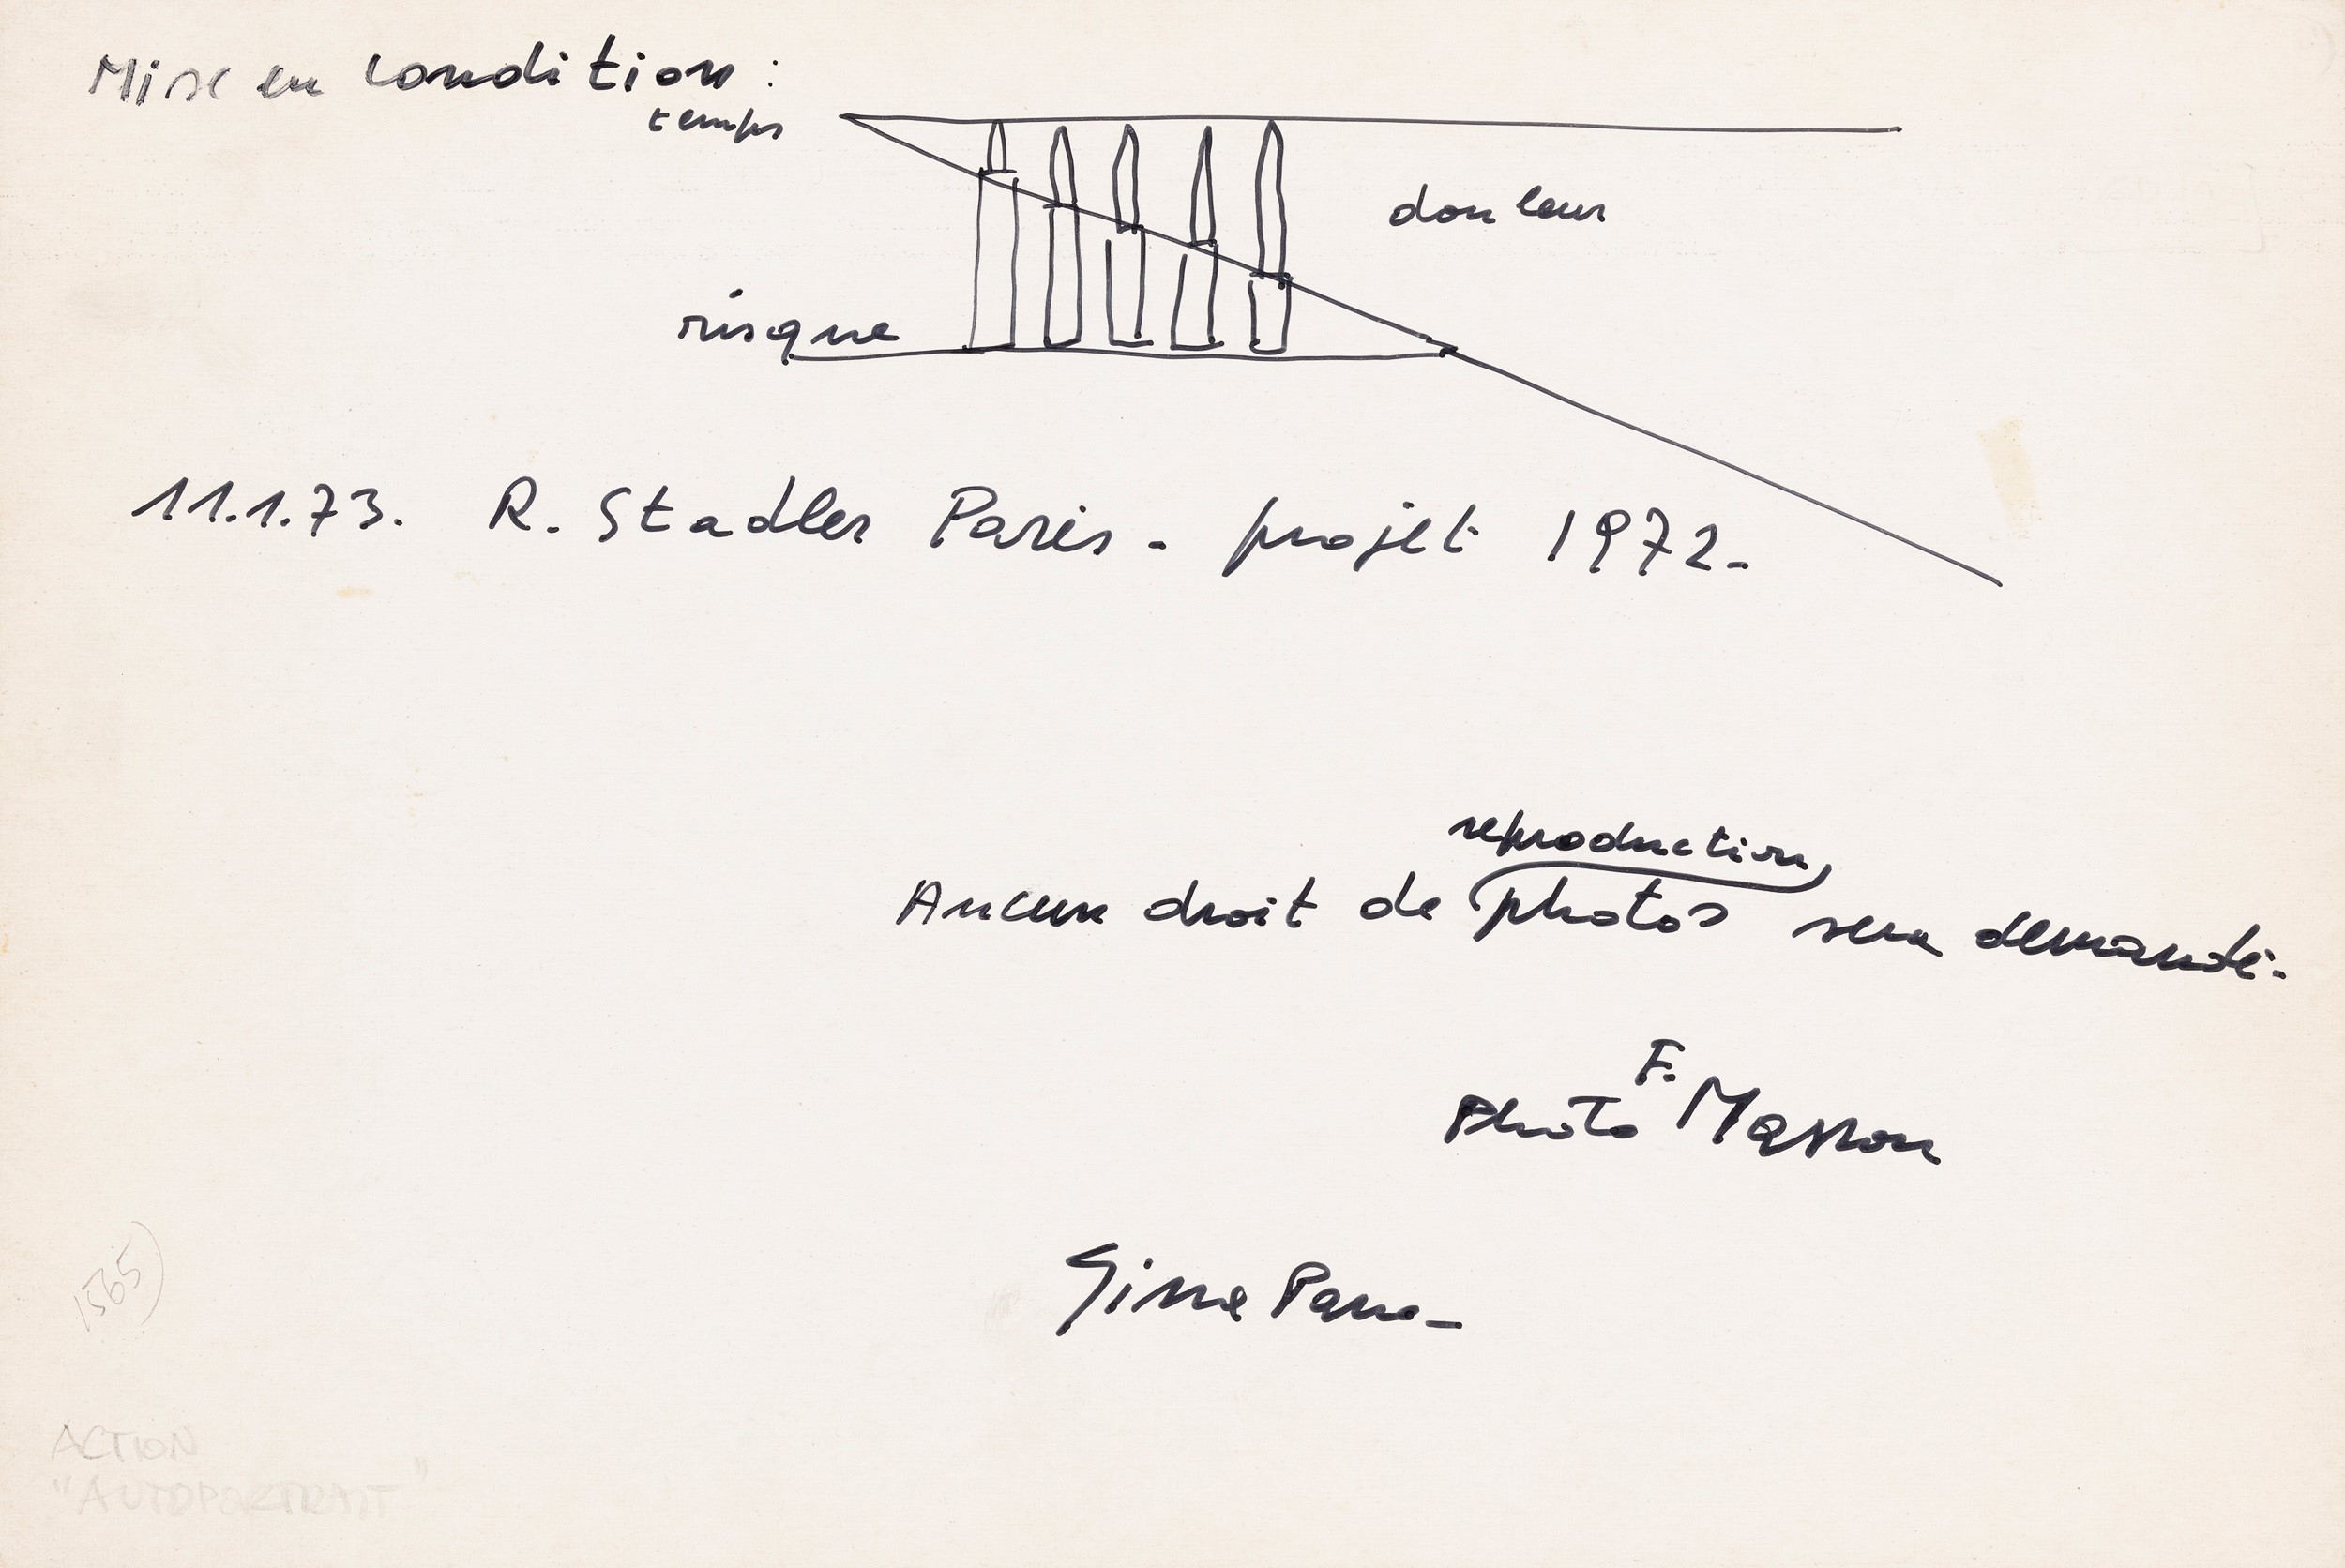 Mise en condition :
temps
douleur
risque
11.1.73. R. Stadler Paris - projet 1972.
reproduction
Aucun droit de photos sera demandé.
F.
Photo Masson
Gina Pane
1565)
ACTION
"AUTOPORTRAIT"